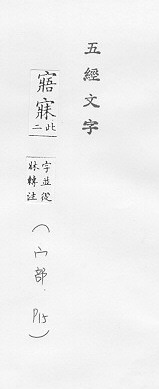 五經文字
寤寐
此
二
字並從
轉注
(宀部. P15)